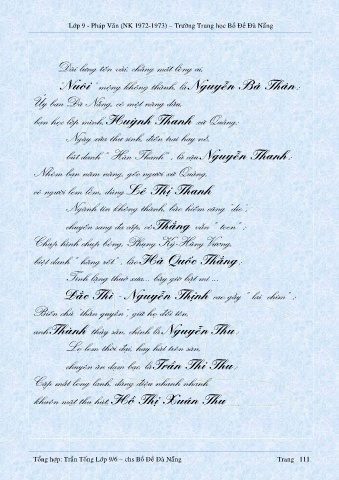 Lớp 9 - Pháp Văn (NK 1972-1973) – Trường Trung học Bồ Đề Đà Nẵng
Dài lưng tốn vải, chẳng mất lòng ai,
"Nuôi" mộng không thành, là Nguyễn Bá Thân;
Uỷ ban Đà Nẵng, có một nàng dâu,
bạn học lớp mình, Huỳnh Thanh xứ Quảng;
Ngày xưa thư sinh, điển trai hay nể,
biệt danh "Hàn Thanh", là cậu Nguyễn Thanh;
Nhóm bạn năm nàng, gốc người xứ Quảng,
có người lom lom, dáng Lê Thị Thanh
Ngành tín không thành, bảo hiểm càng "do",
chuyển sang đa cấp, cô Thắng vẫn "toen";
Chụp hình chụp bóng, Phụng Ký-Hùng Vương,
biệt danh "hăng rết", lão Hà Quốc Thắng;
Tính lặng thuở xưa... bây giờ bật mí ...
Đắc Thi - Nguyễn Thịnh cao gầy "lai chim";
Biên chú "thân quyền", giữ họ đổi tên,
anh Thành thấy sân, chính là Nguyễn Thu;
Lọ lem thời đại, hay hát trên sân,
chuyện ăn dạm bạc, là Trần Thị Thu;
Cặp mắt long lanh, dáng điệu nhanh nhanh
khuôn mặt thu hút, Hồ Thị Xuân Thu
Tổng hợp: Trần Tống Lớp 9/6 – chs Bồ Đề Đà Nẵng Trang 111